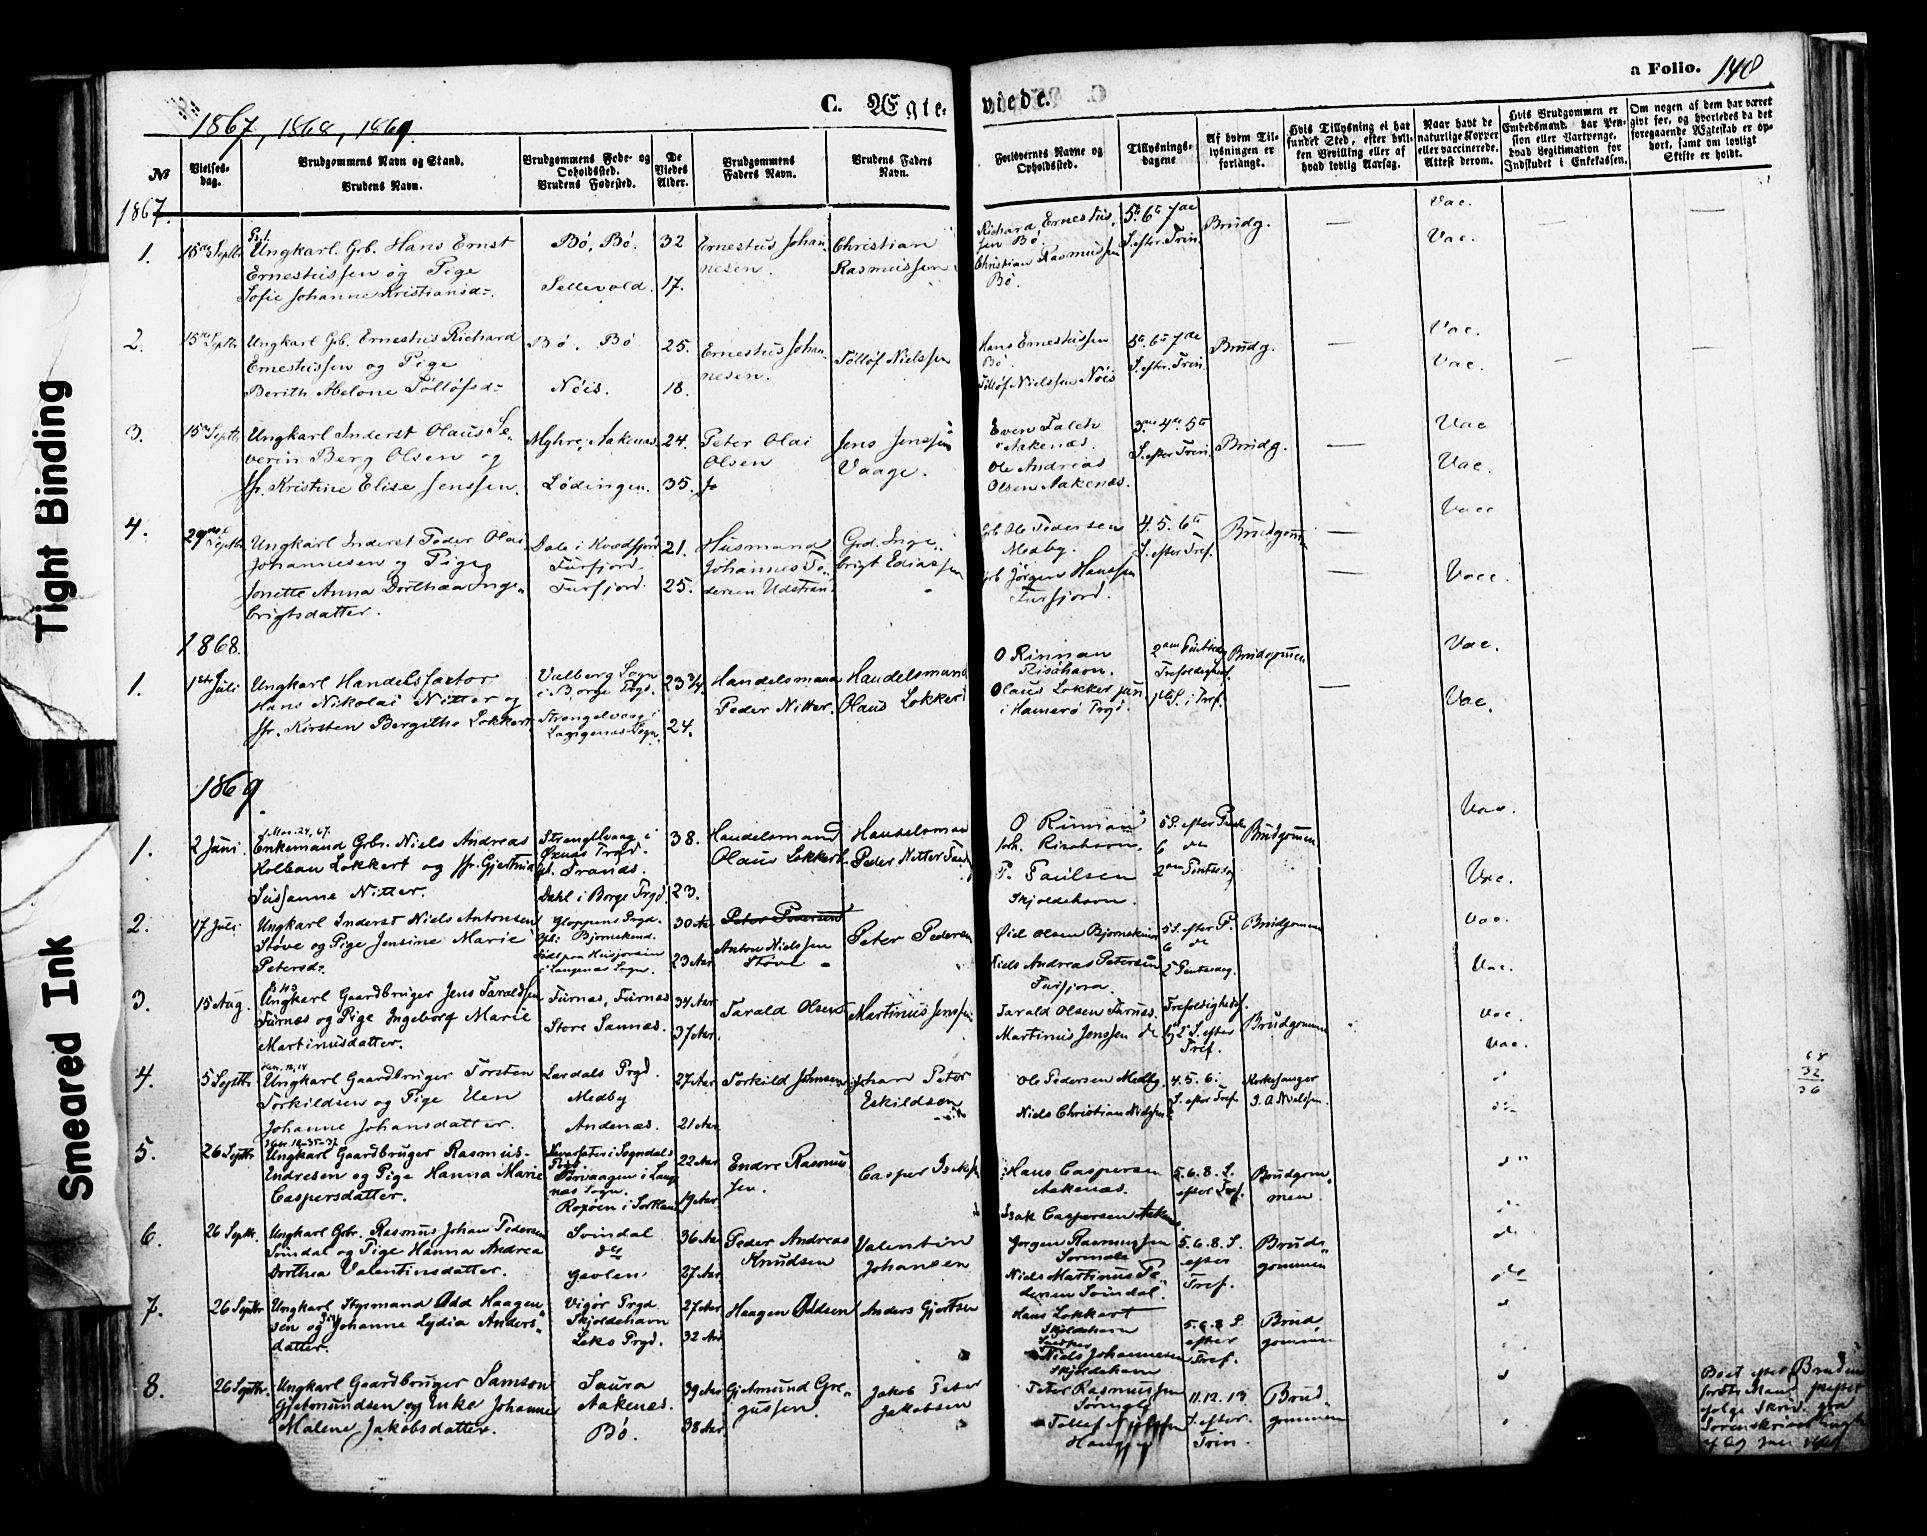 Tight Binding
Smeared Ink
a Folio. 148
C. Ægte-
viede.
1867, 1868, 1869.
No
Vielses-
dag.
Brudgommens Navn og Stand.
Brudens Navn.
Brudgommens Føde- og
Opholdssted.
Brudens Fødested.
De
Viedes
Alder.
Brudgommens
Faders Navn.
Brudens Faders
Navn.
Forlovernes Navne og
Opholdssted.
Tillysnings-
dagene
Af hvem Til-
lysningen er
forlangt.
Hvis Tillysning ei har
fundet Sted, efter hvil-
ken Bevilling eller af
hvad lovlig Aarsag.
Naar havt de
naturlige Kopper
eller vaccinerede.
Attest derom.
Hvis Brudgommen er
Embedsmand, har Pen-
sion eller Vartpenge,
hvad Legitimation for
Indskudet i Enkekassen.
Om nogen af dem har været
gift før, og hvorledes da det
foregaaende Ægteskab er op-
hørt, samt om lovligt
Skifte er holdt.
1867.
1. 15de Septbr Ungkarl. Grb. Hans Ernst
Ernestussen og Pige
Sofie Johanne Kristiansd:
Bø, Bø.
Sellevold.
32
17.
Ernestus Johan-
nesen.
Christian
Rasmussen
Richard Ernestus-
sen Bø.
Christian Rasmussen
Bø.
5te 6te 7de
S. efter Trin.
Brudg.
Vac.
Vac.
2. 15de Septbr Ungkarl Grb. Ernestus Richard
Ernestussen og Pige
Berith Abelone Tølløfsd:
Bø. Bø
Nøis.
25.
18.
Ernestus Johan-
nesen.
Tølløf Nielssen
Hans Ernestussen
Bø
Tølløf Nielssen Nøis
5te 6te 7de
S. efter Trin.
Brudg.
Vac.
Vac.
3. 15de Septbr Ungkarl Inderst Olaus Se-
verin Berg Olsen og
Jfr. Kristine Elise Jenssen.
Myhre, Aakenæs
Lødingen.
24.
35.
Peter Olai
Olsen
Jens Jenssen
Vaage.
Even Falch
Aakenæs.
Ole Andreas
Olsen Aakenæs.
3die 4de 5te
S. efter Trin.
Brudg.
Vac
Vac.
4. 29de Septbr. Ungkarl Inderst Peder Olai
Johannesen og Pige
Jonette Anna Dorthea Inge-
brigtsdatter.
Dale i Kvædfjord
Tufjord.
Tufjord.
21.
25.
Husmand
Johannes Pe-
dersen Udstran
Grd. Inge-
brigt Ediassen
Grb Ole Pedersen
Medby.
Grb Jørgen Hanssen
Tufjord.
4. 5. 6te
S. efter Tref.
Brudgommen
Vacc
Vacc.
1868.
1. 1ste Juli Ungkarl Handelsfactor
Hans Nikolai Nitter og
Jfr. Kirsten Bergithe Lokkert
Valberg Sogn
i Borge Prgd.
Strengelvaag i
Langenæs Sogn.
23 3/4.
24.
Handelsmand
Peder Nitter.
Handelsmand
Olaus Lokkert
O Rinnan
Risøhavn.
Olaus Lokkert jun
i Hamerø Prgd
Brudgommen
Vac.
Vac.
1869
1. 2 Juni. Enkemand Grbr. Niels Andreas
Kolban Lokkert og Jfr. Gjertrud
Susanne Nitter.
Strengelvaag i
Øxnæs Prgd.
Tranæs.
Dahl i Borge Prgd.
38.
23.
Handelsmand
Olaus Lokkert.
Handelsman
Peder Nitter
O Rinnan
Risøhavn.
P. Paulsen
Skjoldehavn.
6 de
2den Pintsedag
Brudgommen
Vac.
Vac.
2. 17 Juli Ungkarl Inderst Niels Antonsen
Støve og Pige Jensine Marie
Petersd:
Gloppens Prgd.
Oph: Bjørnskind.
i Langenæs Sogn.
30 Aar
23 Aar.
Peter Pedersen
Anton Nielssen
Støve
Peter Pedersen
Øiel Olsen Bjørnskind
Niels Andreas Petersen
Tufjord.
5 S. efter P.
6 de
2 Pintsedag.
Brudgommen
Vac.
Vac.
3. 15 Aug. Ungkarl Gaardbruger Jens Taraldsen
Turnæs og Pige Ingeborg Marie
Martinusdatter.
Turnæs, Turnæs
Store Sannæs.
34 Aar
37 Aar.
Tarald Olsen
Martinus Jenssen
Tarald Olsen Turnæs.
Martinus Jenssen de
Trefoldighedsf.
1 og 2 S. efter
Tref.
Brudgommen
Vac.
Vac.
4. 5 Septbr Ungkarl Gaardbruger Torsten
Torkildsen og Pige Elen
Johanne Johansdatter.
Lærdals Prgd.
Medby
Andenæs.
27 Aar
21 Aar.
Torkild Johnsen
Johan Peter
Eskildsen
Ole Pedersen Medby
Niels Christian Nielssen
4. 5. 6.
S. efter Tref
Kirkesanger
J. A Nielsen.
68
32
36
5. 26 Septbr Ungkarl Gaardbruger Rasmus
Endresen og Pige Hanna Marie
Caspersdatter.
i Sogndals
Prgd
Torvaagen i Lang-
næs Sogn.
Roxøen i Sortland
22 Aar
19 Aar.
Endre Rasmus-
sen.
Casper Isaksen
Hans Caspersen
Aakenæs.
Isak Caspersen Aakenæs
5. 6. 8. S.
efter Tref.
Brudgom-
men
6. 26 Septbr. Ungkarl Gbr. Rasmus Johan Pedersen
Svindal og Pige Hanna Andrea
Dorthea Valentinsdatter.
Svindal
de
Gavlen
36 Aar
27 Aar.
Peder Andreas
Knudsen
Valentin
Johansen
Jørgen Rasmussen
Sørmole
Niels Martinus Pe-
dersen Svindal.
5. 6. 8. S.
efter
Tref.
Brud-
gommen
7. 26 Septbr Ungkarl Styrmand Odd Haagen-
sen og Johanne Lydia Anders-
datter.
Vigør Prgd.
Skjoldehavn
Leko Prgd.
27 Aar
32 Aar
Haagen Oddsen
Anders Gjertsen
Hans Lokkert
Skjoldehavn
Niels Johannesen
Skjoldehavn
5. 6. 8 S.
efter
Tref.
Brud
gommen
8. 26 Septbr. Ungkarl Gaardbruger Samson
Gjetmundsen og Enke Johanne
Malene Jakobsdatter.
Saura
Aakenæs.
Bø.
39 Aar
38 Aar.
Gjetmund Gre-
gussen
Jakob Peter
Jakobsen
Peter Rasmussen
Sørmole
11. 12. 13
S. efter
Trin.
Brud-
gommen
Boet efter Brudens
første Mand
følge Skriv. fra
Sorenskriver